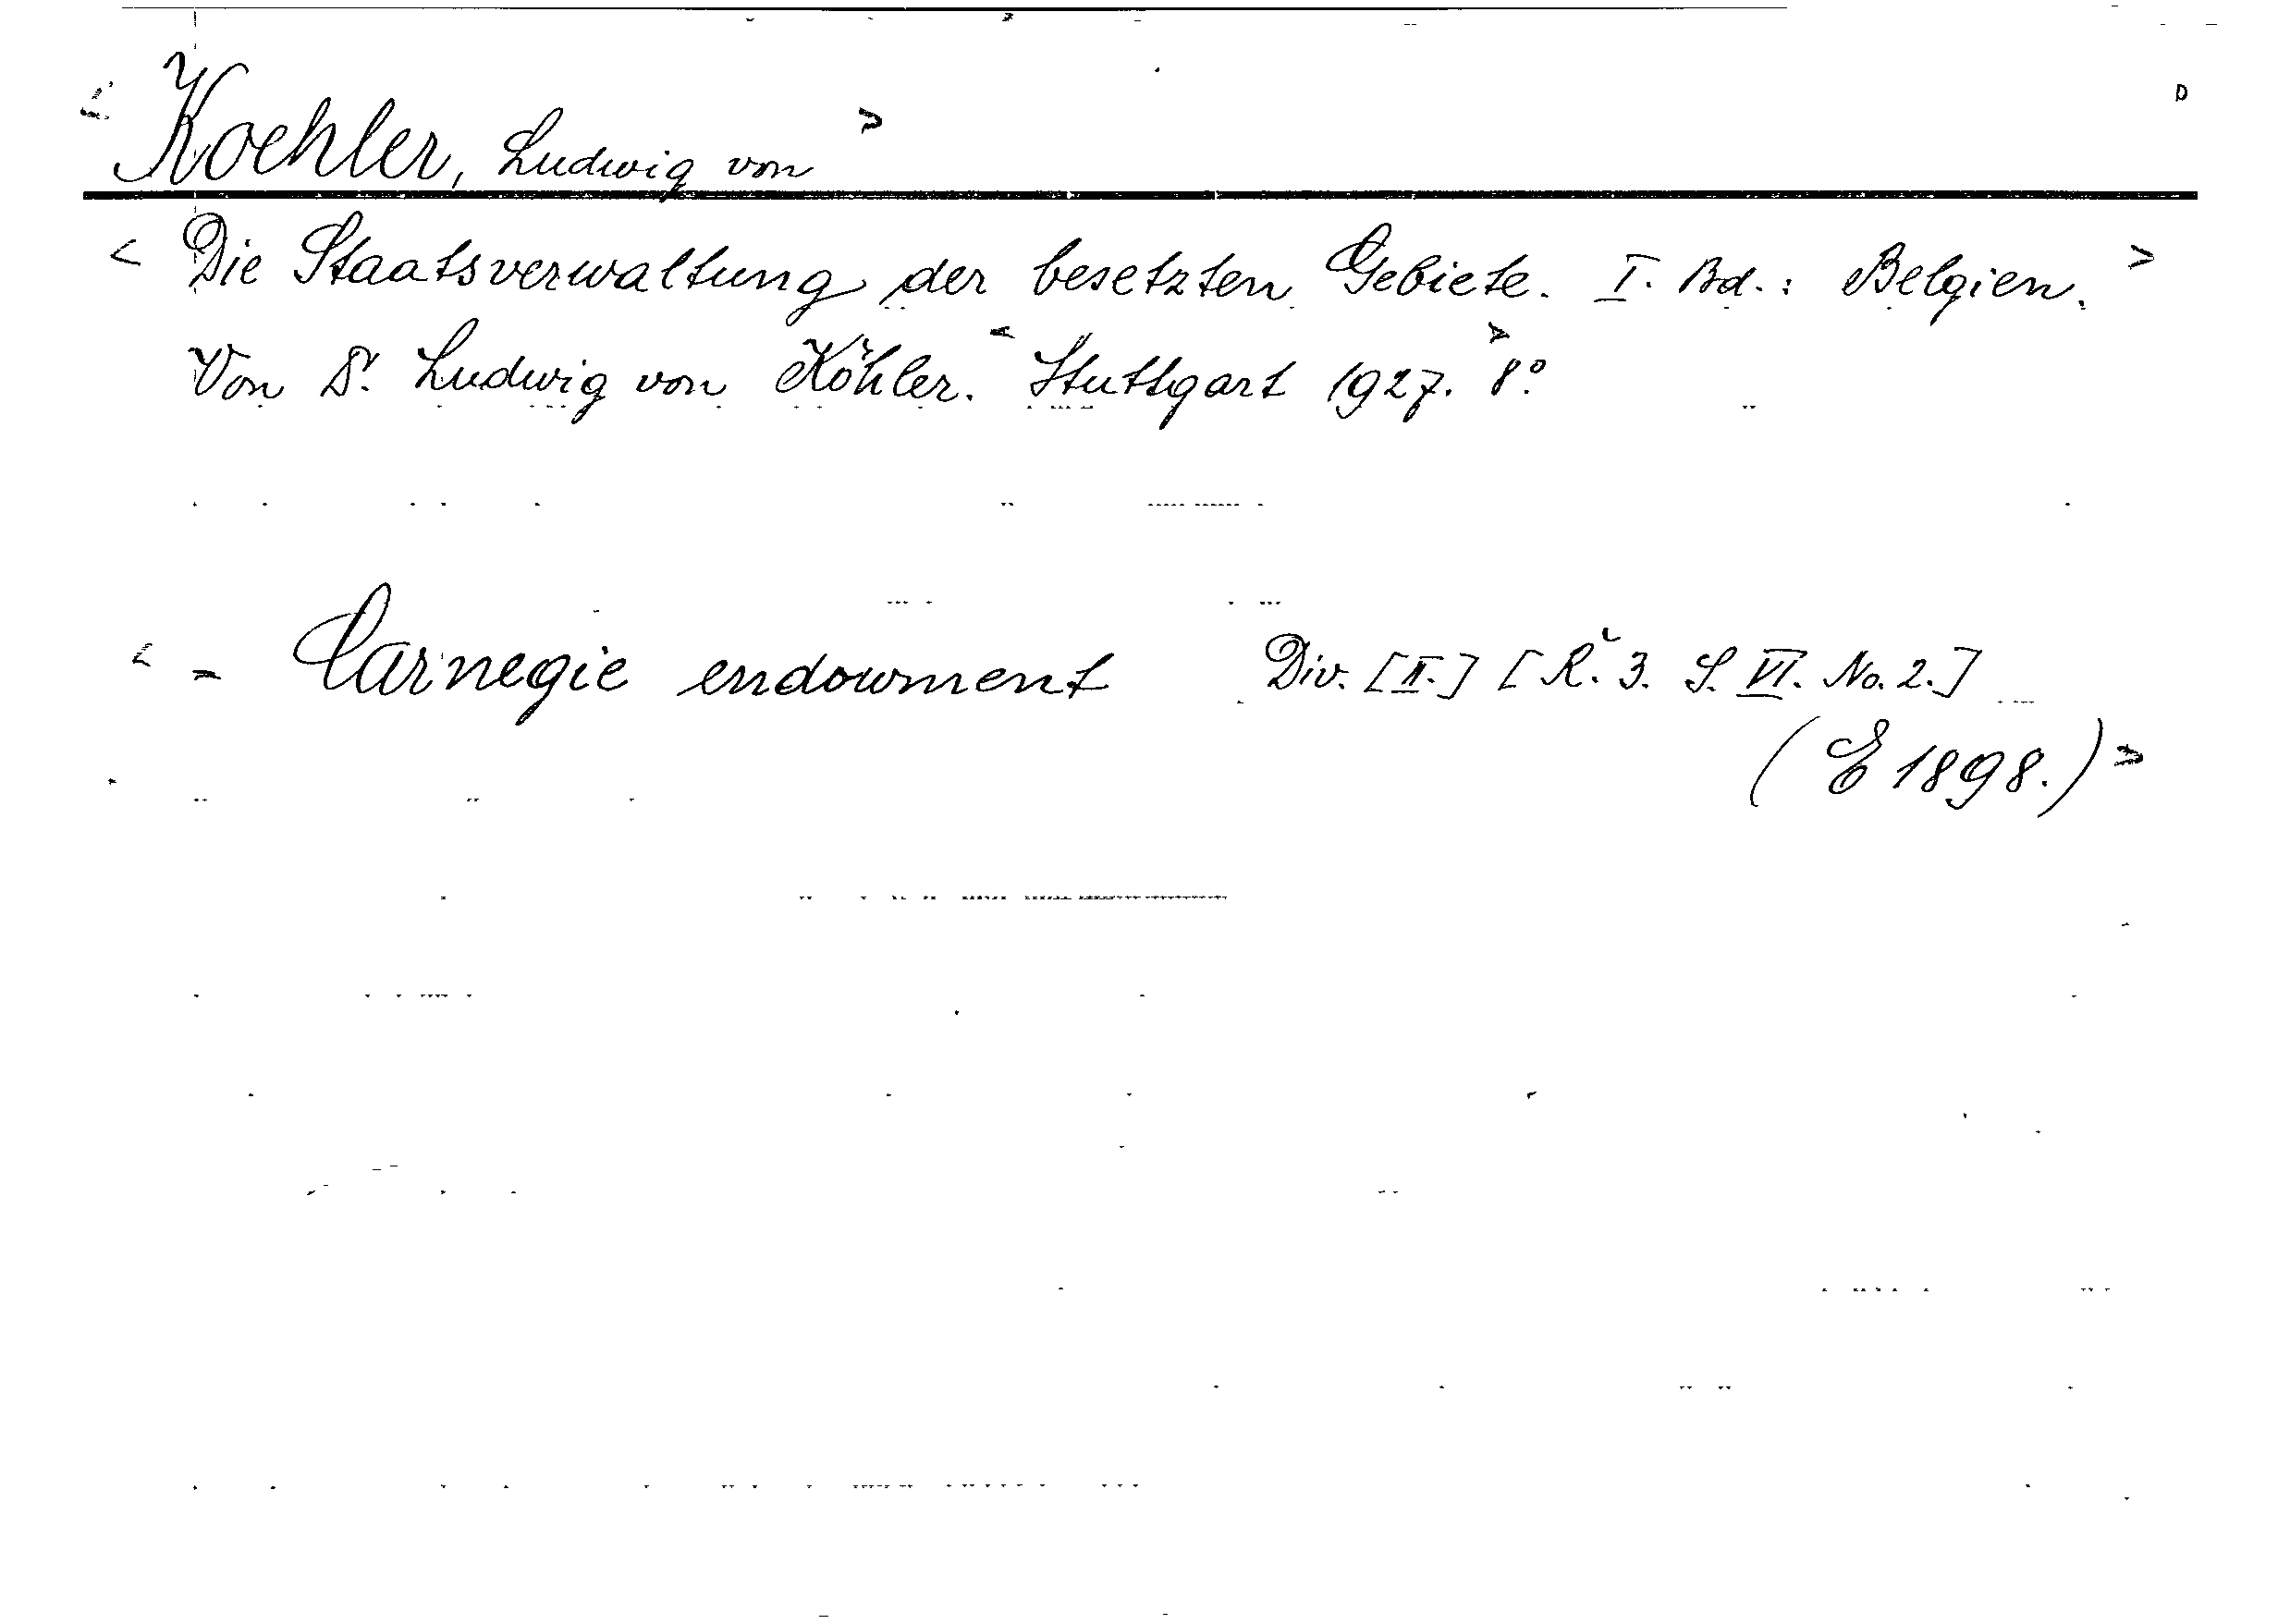 < Koehler, Ludwig von > D
< Die Staatsverwaltung der besetzten Gebiete. I. Bd.: Belgien. >
Von Dr. Ludwig von Köhler. < Stuttgart 1927. > 8°.
< = Carnegie endowment Div. [II.] [Ř. 3. S. VI. No. 2.]
(E 1898.) >